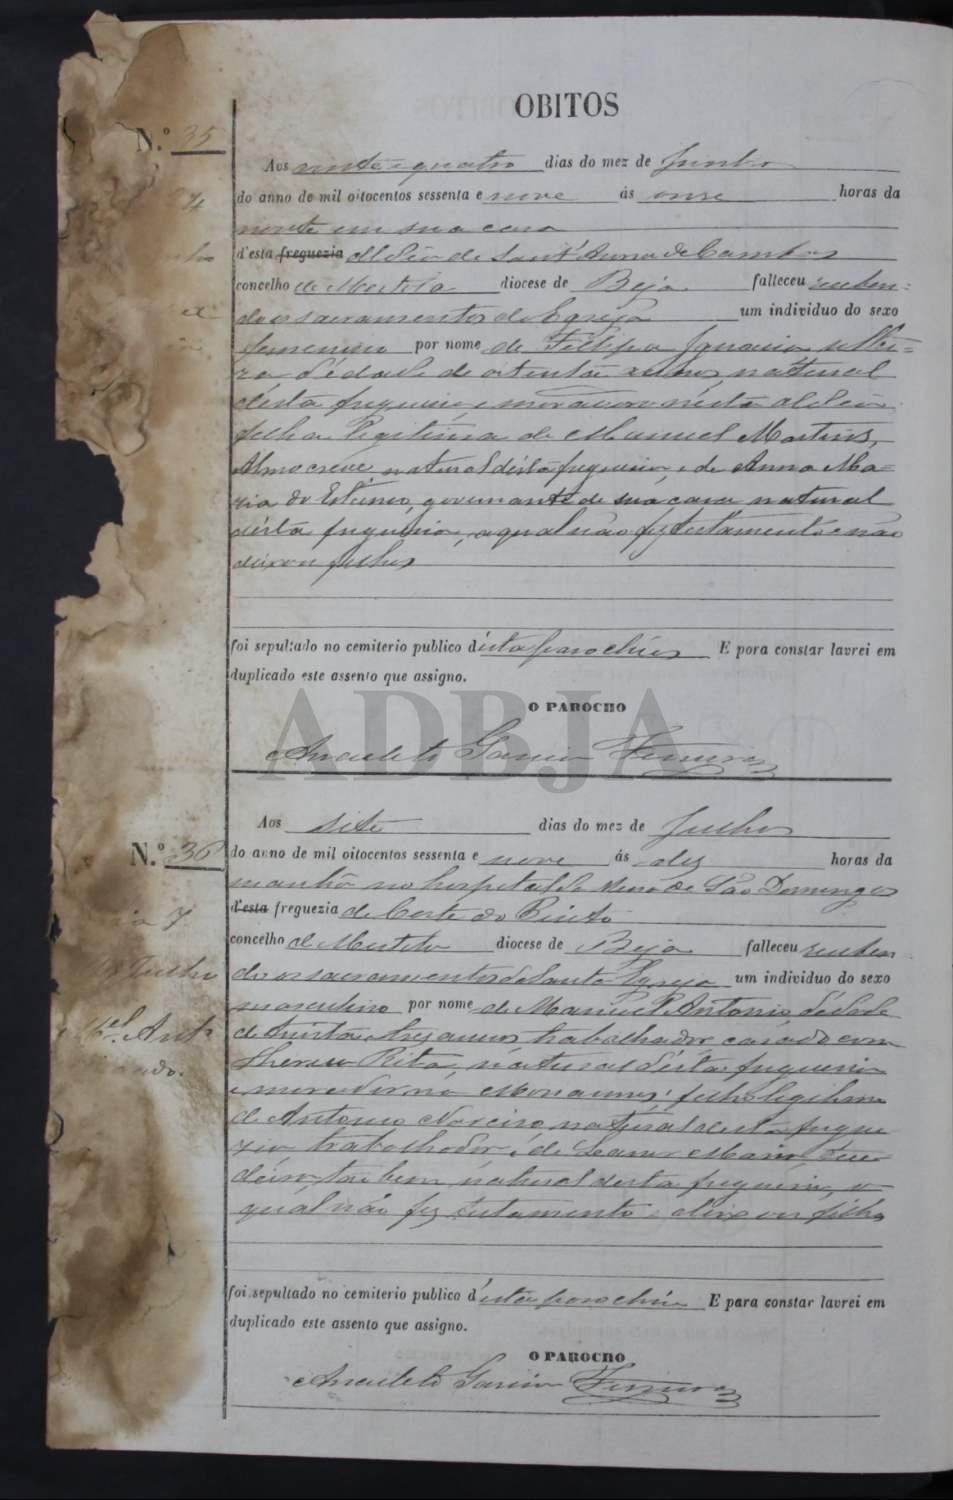 OBITOS
N.º 35
Aos vinte e quatro dias do mez de Junho
do anno de mil oitocentos sessenta e nove ás onse horas da
noute em sua casa
d'esta freguezia Aldeia de Sant'Anna de Cambas
concelho de Mertola diocese de Beja falleceu reseben=
do os sacramentos da Egreja um individuo do sexo
femenino por nome de Felispa Ignacia solttei=
ra d'edade de oitenta annos, natural
désta freguesia e moradora nésta aldeia
filha legitima de Manuel Martins,
Almocreve natural désta freguesia, e de Anna Ma=
ria governante de sua casa natural
désta freguesia, a qual não fez testamento e não
deixou filhos
foi sepultado no cemiterio publico d'ésta parochia E para constar lavrei em
duplicado este assento que assigno.
O PAROCHO
Anacleto Garcia Ferreira
N.º 36
Aos sete dias do mez de Julho
do anno de mil oitocentos sessenta e nove ás dez horas da
manhã no hospital da Mina de São Domingos
d'esta freguezia de Corte do Pinto
concelho de Mertola diocese de Beja falleceu reseben
do os sacramentos da Santa Egreja um individuo do sexo
masculino por nome de Manuel Antonio, d'edade
de trinta e tres annos, trabalhador casado com
Theresa Rita, natural d'ésta freguesia
e morador no filho legitimo
de Antonio Narciso, natural desta fregue
zia trabalhador, e de Maria,
tambem natural desta freguesia, o
qual não fez testamento e deixou filhos
Julho
M.el Ant.º
foi sepultado no cemiterio publico d'ésta parochia E para constar lavrei em
duplicado este assento que assigno.
O PAROCHO
Anacleto Garcia Ferreira
ADBJA